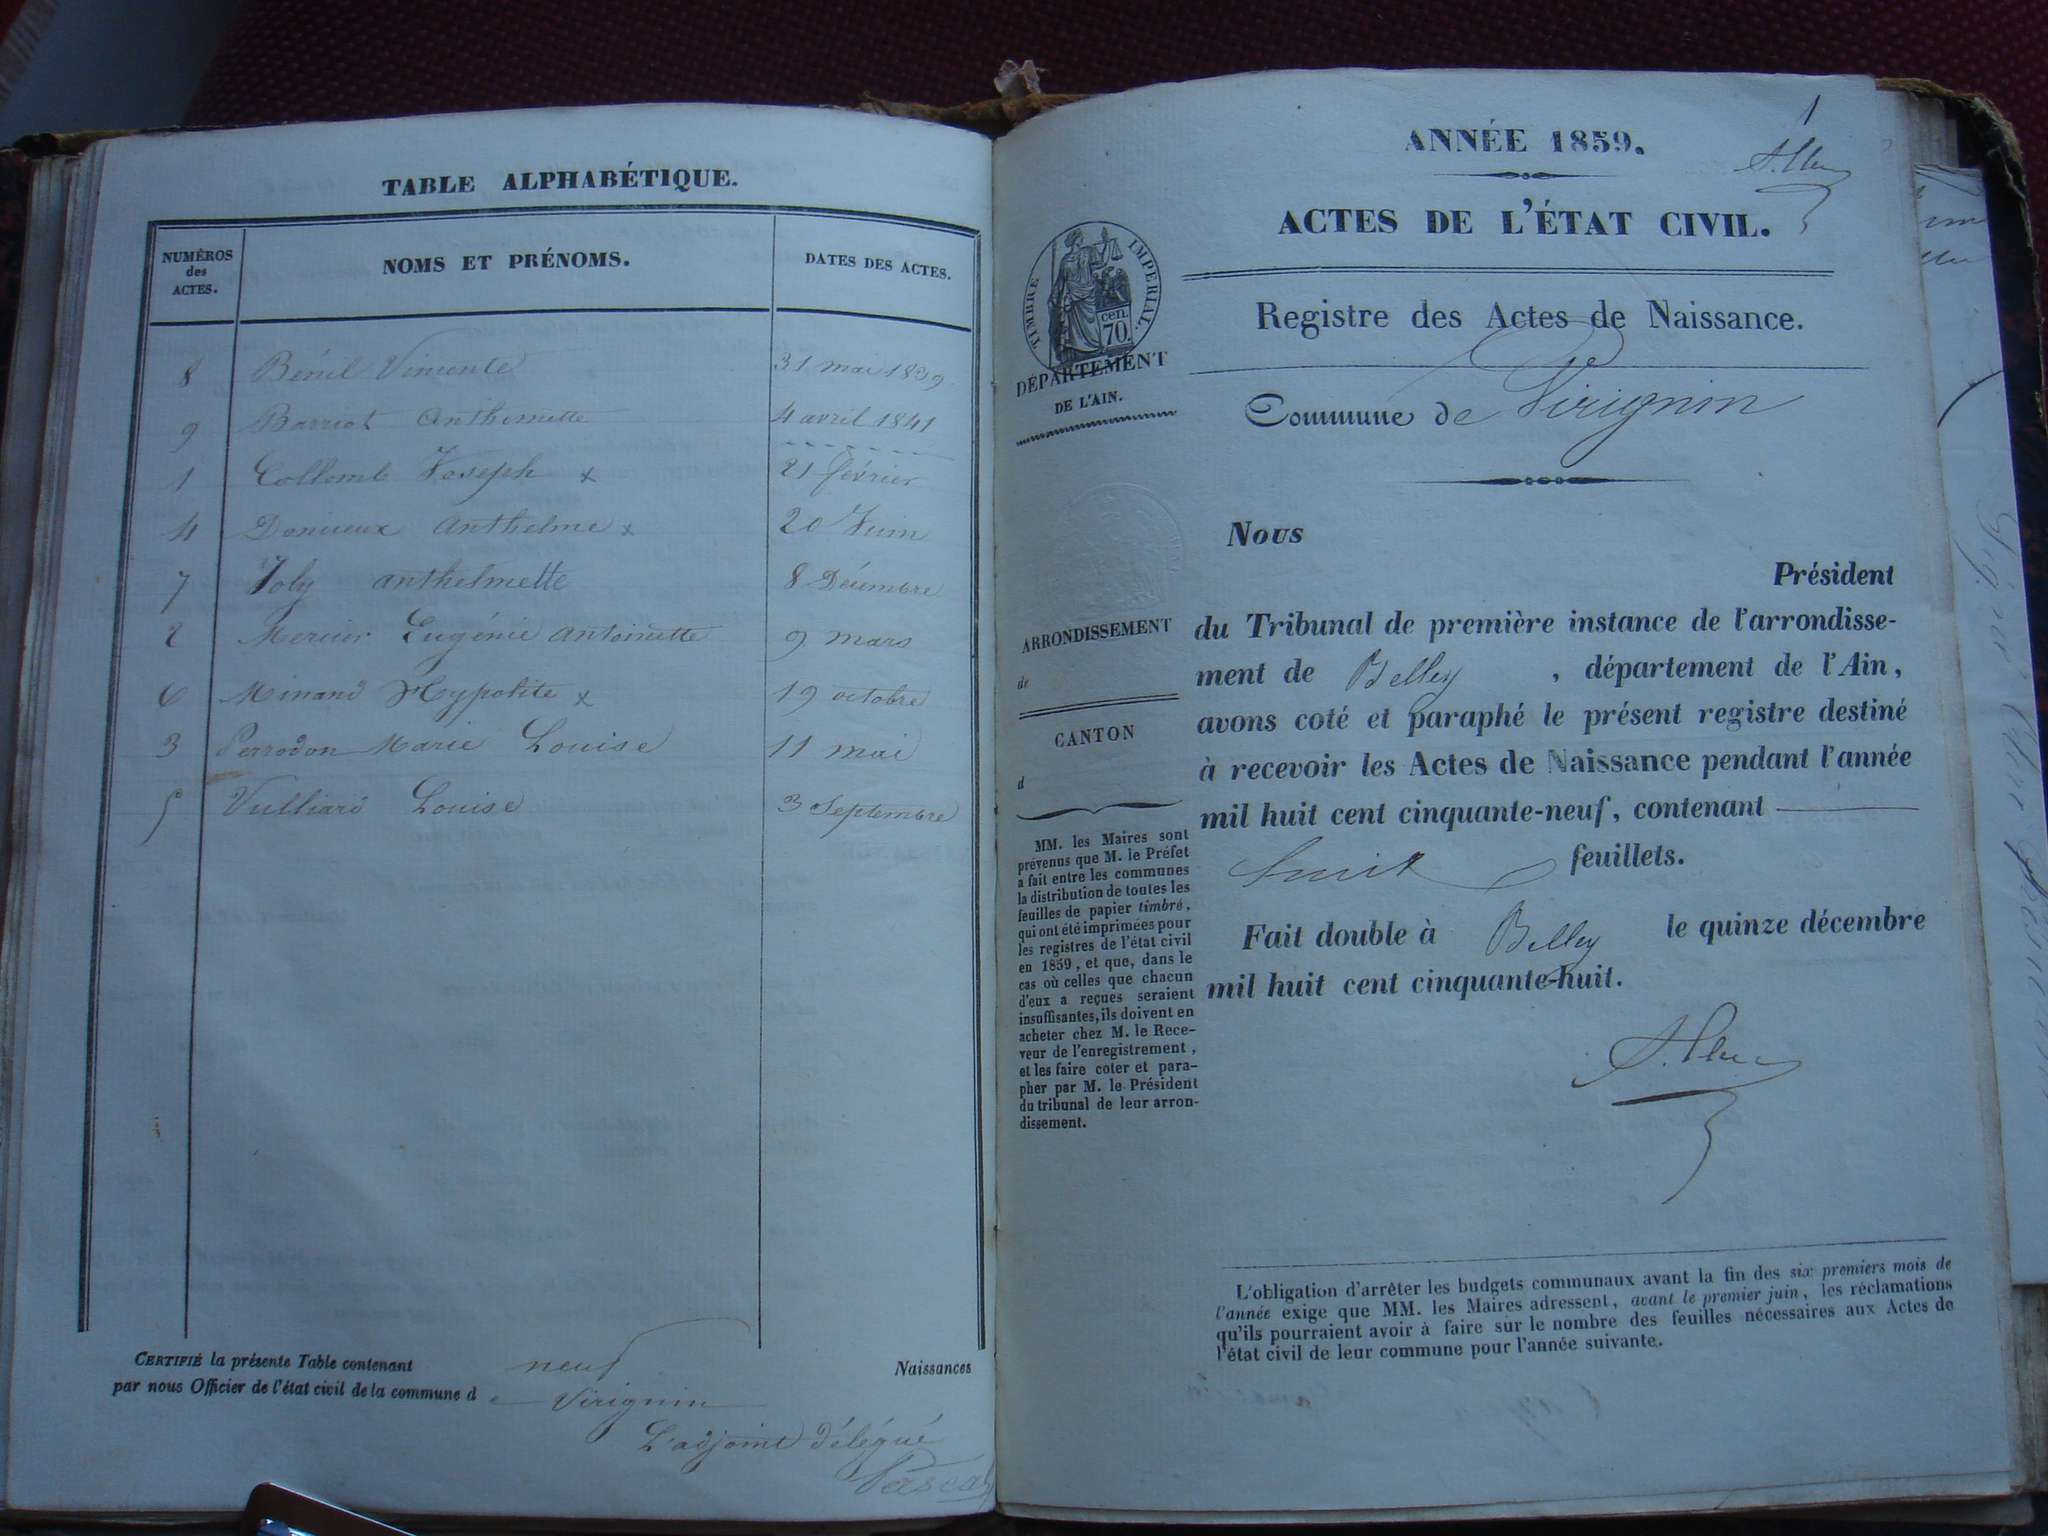 TABLE ALPHABÉTIQUE.
NUMÉROS des ACTES. NOMS ET PRÉNOMS. DATES DES ACTES.
8 Vincente 31 mai 1839
9 Barriot Anthemette 4 avril 1841
1 Collomb Joseph x 21 février
4 Anthelme x 20 Juin
7 Joly anthelmette 8 Décembre
2 Mercier Eugénie Antoinette 9 mars
6 Minand Hypolite x 19 octobre
3 Perrodon Marie Louise 11 mai
5 Vulliard Louise 3 Septembre
CERTIFIÉ la présente Table contenant neuf Naissances
par nous Officier de l'état civil de la commune de Virignin
L'adjoint délégué
Pascal
1
ANNÉE 1859.
ACTES DE L'ÉTAT CIVIL.
TIMBRE IMPÉRIAL.
cen. 70.
DÉPARTEMENT
DE L'AIN.
Registre des Actes de Naissance.
Commune de Virignin
Nous
Président
du Tribunal de première instance de l'arrondisse-
ment de Belley , département de l'Ain,
avons coté et paraphé le présent registre destiné
à recevoir les Actes de Naissance pendant l'année
mil huit cent cinquante-neuf, contenant
huit feuillets.
Fait double à Belley le quinze décembre
mil huit cent cinquante-huit.
ARRONDISSEMENT
de
CANTON
d
MM. les Maires sont
prévenus que M. le Préfet
a fait entre les communes
la distribution de toutes les
feuilles de papier timbré,
qui ont été imprimées pour
les registres de l'état civil
en 1859, et que, dans le
cas où celles que chacun
d'eux a reçues seraient
insuffisantes, ils doivent en
acheter chez M. le Rece-
veur de l'enregistrement,
et les faire coter et para-
pher par M. le Président
du tribunal de leur arron-
dissement.
L'obligation d'arrêter les budgets communaux avant la fin des six premiers mois de
l'année exige que MM. les Maires adressent, avant le premier juin, les réclamations
qu'ils pourraient avoir à faire sur le nombre des feuilles nécessaires aux Actes de
l'état civil de leur commune pour l'année suivante.